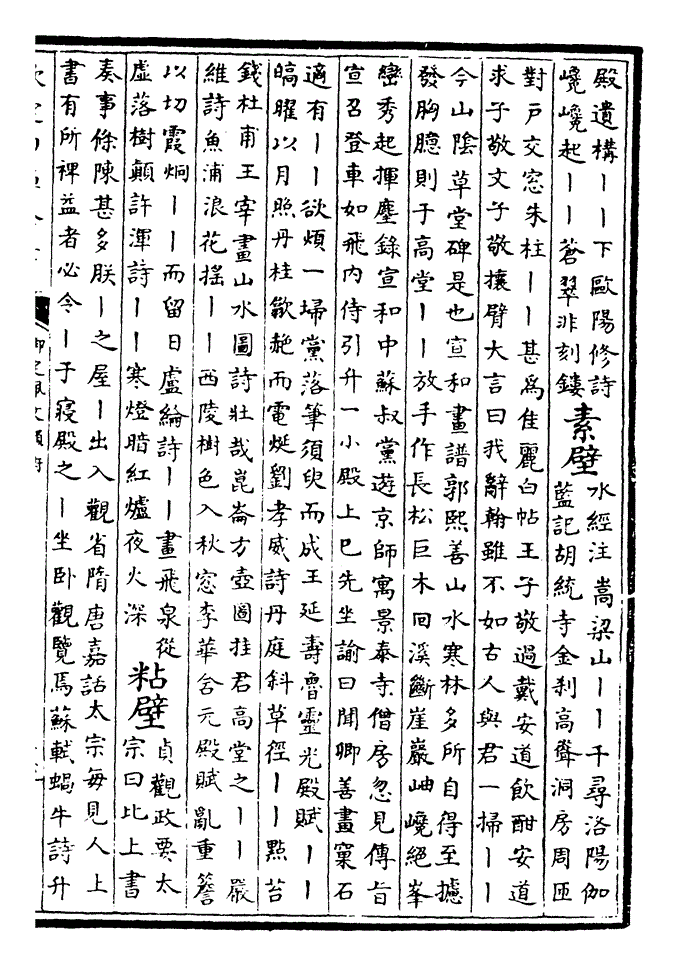 殿遺構丨丨下歐陽修詩
嶢嶢起丨丨蒼翠非刻鏤
素壁
水經注嵩梁山丨丨千尋洛陽伽
藍記胡統寺金刹高聳洞房周匝
對戶交窓朱柱丨丨甚爲佳麗白帖王子敬過戴安道飲酣安道
求子敬文子敬攘臂大言曰我辭翰雖不如古人與君一掃丨丨
今山陰草堂碑是也宣和畫譜郭熙善山水寒林多所自得至攄
發胸臆則于高堂丨丨放手作長松巨木回溪斷崖巖岫巉絕峯
巒秀起揮麈錄宣和中蘇叔黨遊京師寓景泰寺僧房忽見傳旨
宣召登車如飛内侍引升一小殿上巳先坐諭曰聞卿善畫窠石
適有丨丨欲煩一埽黨落筆須臾而成王延壽魯靈光殿賦丨丨
暠曜以月照丹柱歙赩而電烻劉孝威詩丹庭斜草徑丨丨點苔
錢杜甫王宰畫山水圖詩壯哉崑崙方壺圖挂君高堂之丨丨嚴
維詩魚浦浪花搖丨丨西陵樹色入秋窓李華含元殿賦亂重簷
以切霞炯丨丨而留日盧綸詩丨丨畫飛泉從
虛落樹顛許渾詩丨丨寒燈暗紅爐夜火深
粘壁
貞觀政要太
宗曰比上書
奏事條陳甚多朕丨之屋丨出入觀省隋唐嘉話太宗每見人上
書有所裨益者必令丨于寢殿之丨坐卧觀覽焉蘇軾蝸牛詩升